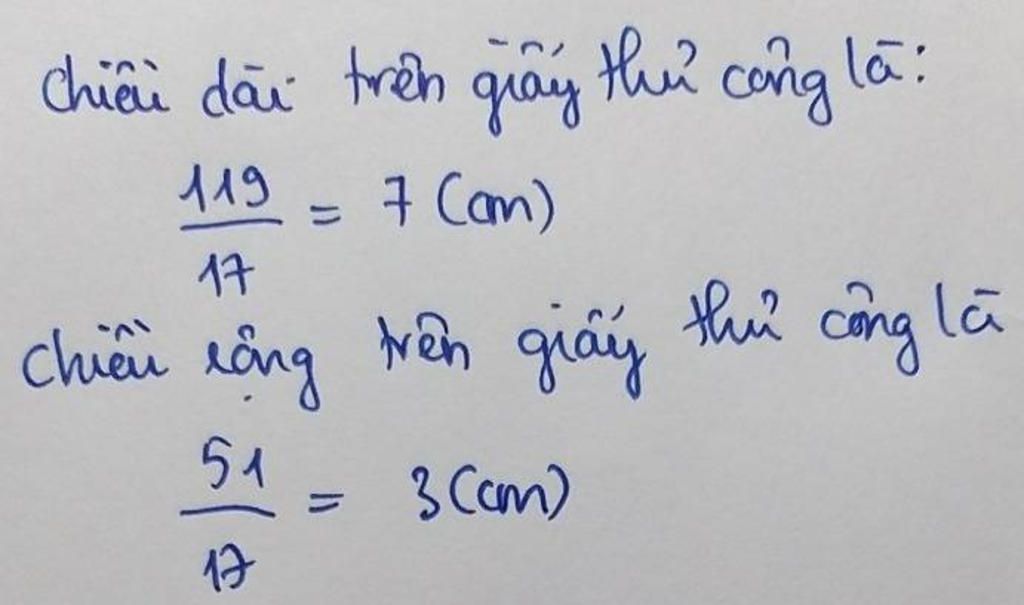 Chiều dài trên giấy thủ công là:
119/17 = 7 (cm)
Chiều rộng trên giấy thủ công là
51/17 = 3 (cm)